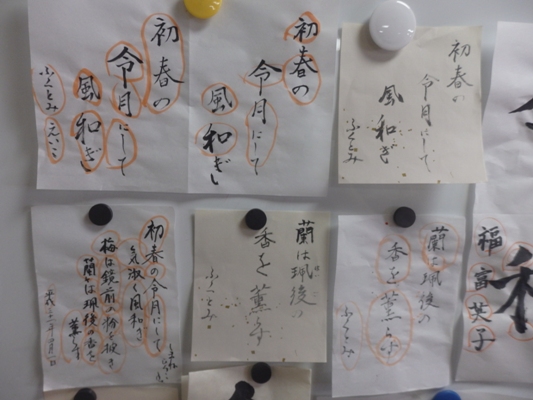 初春の
令月にして
風和ぎ
ふくとみ
初春の
令月にして
風和ぎし
初春の
令月にして
風和ぎ
ふくとみ
初春の令月にして
気淑く風和ぎ
梅は鏡前の粉を披き
蘭は珮後の香を
薫らす
蘭は珮後の
香を薫らす
ふくとみ
蘭は珮後の
香を薫らす
ふくとみ
福富英子
和